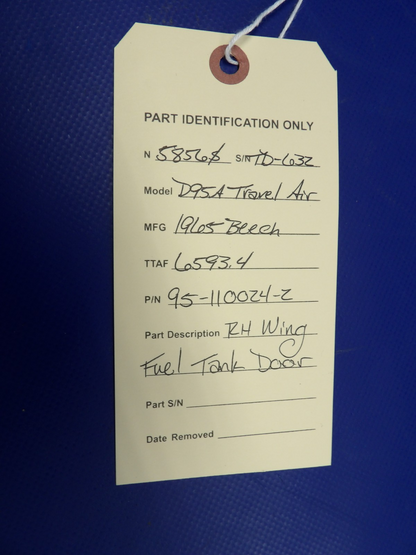 PART IDENTIFICATION ONLY
N 5856S S/N TD-632
Model D95A Travel Air
MFG 1965 Beech
TTAF 6593.4
P/N 95-110024-2
Part Description RH Wing
Fuel Tank Door
Part S/N
Date Removed